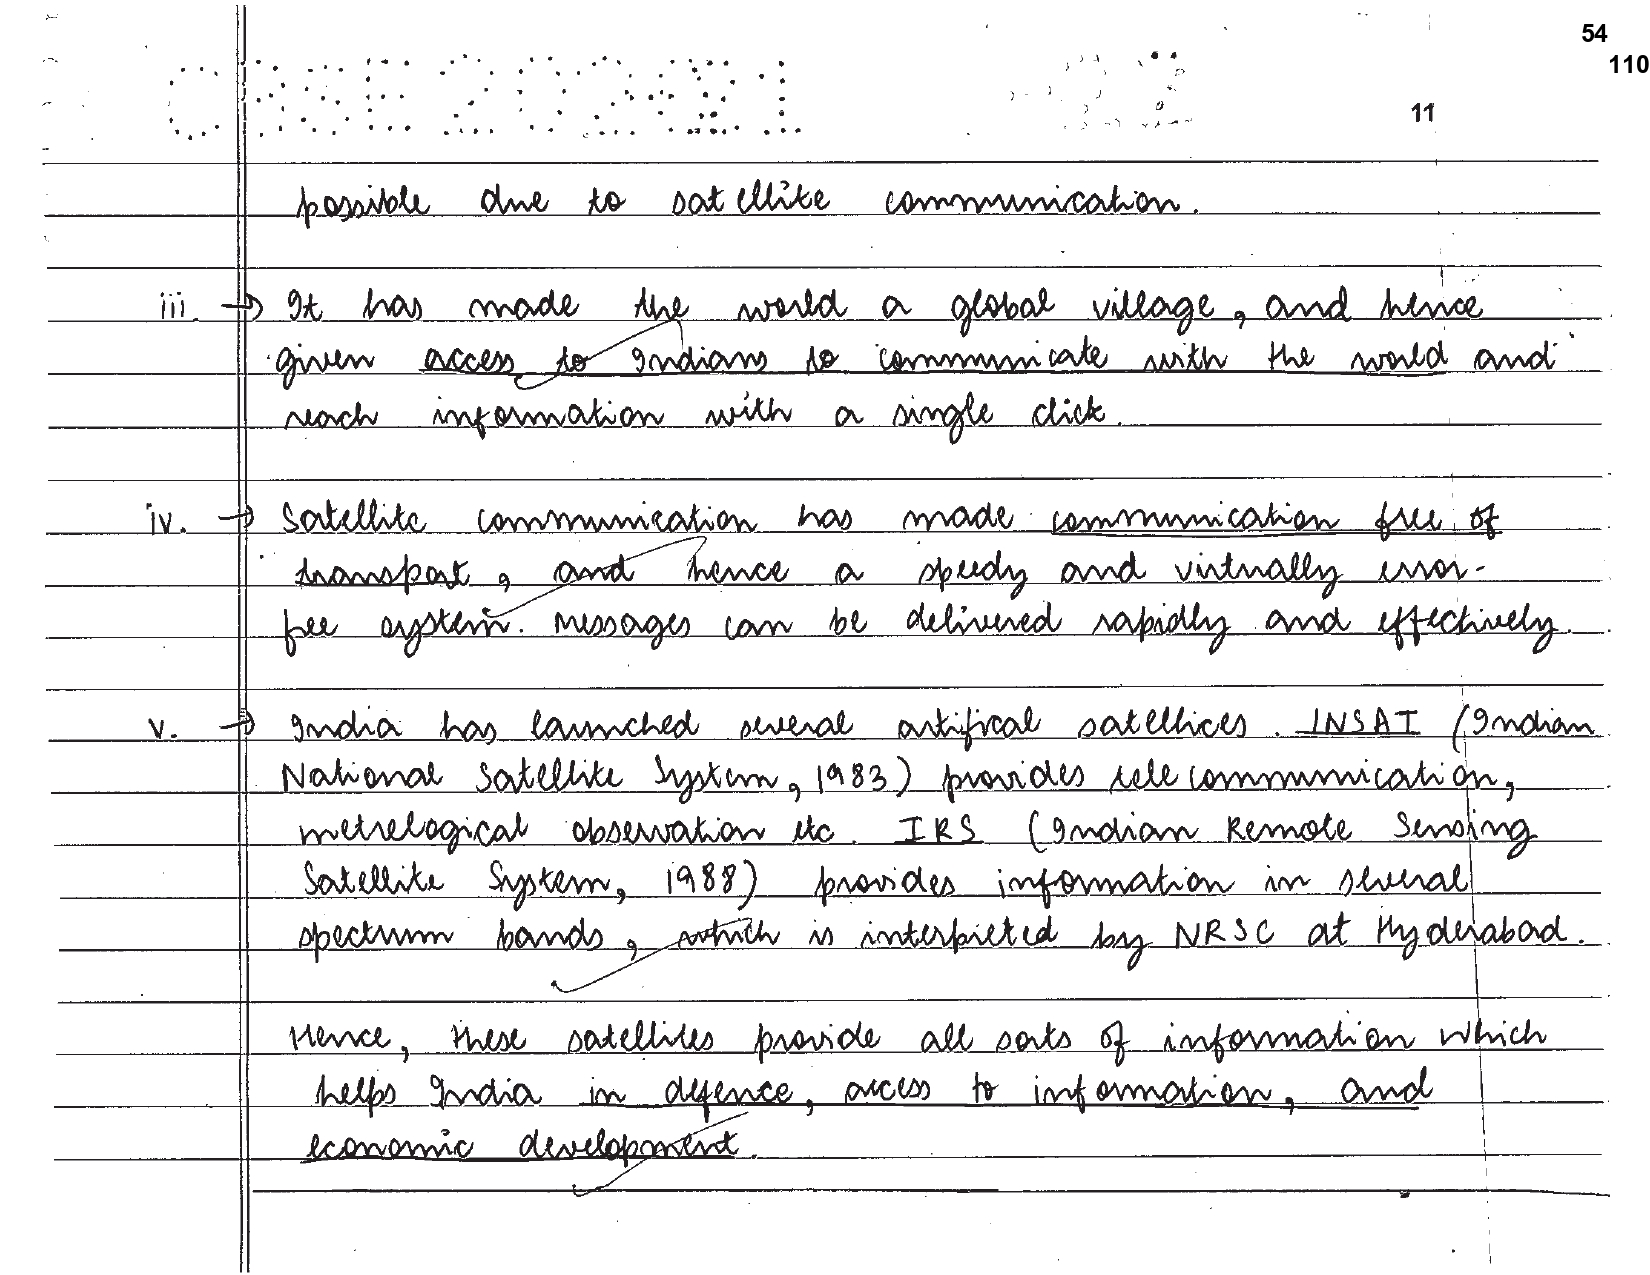 54
110
CBSE 2024
11
possible due to satellite communication.
iii. → It has made the world a global village, and hence
given access to Indians to communicate with the world and
reach information with a single click.
iv. → Satellite communication has made communication free of
transport, and hence a speedy and virtually error-
free system. Messages can be delivered rapidly and effectively.
v. → India has launched several artifical satellices. INSAT (Indian
National Satellite System, 1983) provides telecommunication,
metrelogical observation etc. IRS (Indian Remote Sensing
Satellite System, 1988) provides information in several
spectrum bands, which is interpreted by NRSC at Hyderabad.
Hence, these satellites provide all sorts of information which
helps India in defence, access to information, and
economic development.